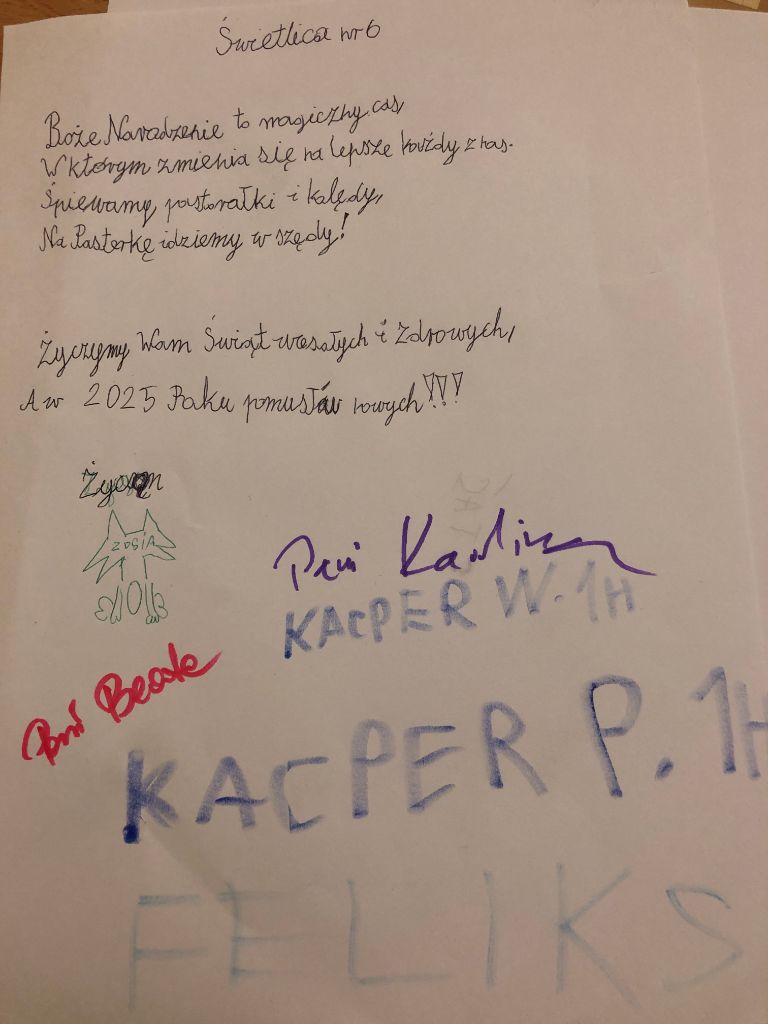 Świetlica nr 6
Boże Narodzenie to magiczny cas,
W którym zmienia się na lepsze każdy z nas.
Śpiewamy, pastorałki i kolędy,
Na Pasterkę idziemy w szędy!
Życzymy Wam Świąt wesołych i Zdrowych,
A w 2025 Roku pomusłów nowych!!!
ZOSIA
Pani Karolina
KACPER W. 1H
Pani Beata
KACPER P. 1H
FELIKS